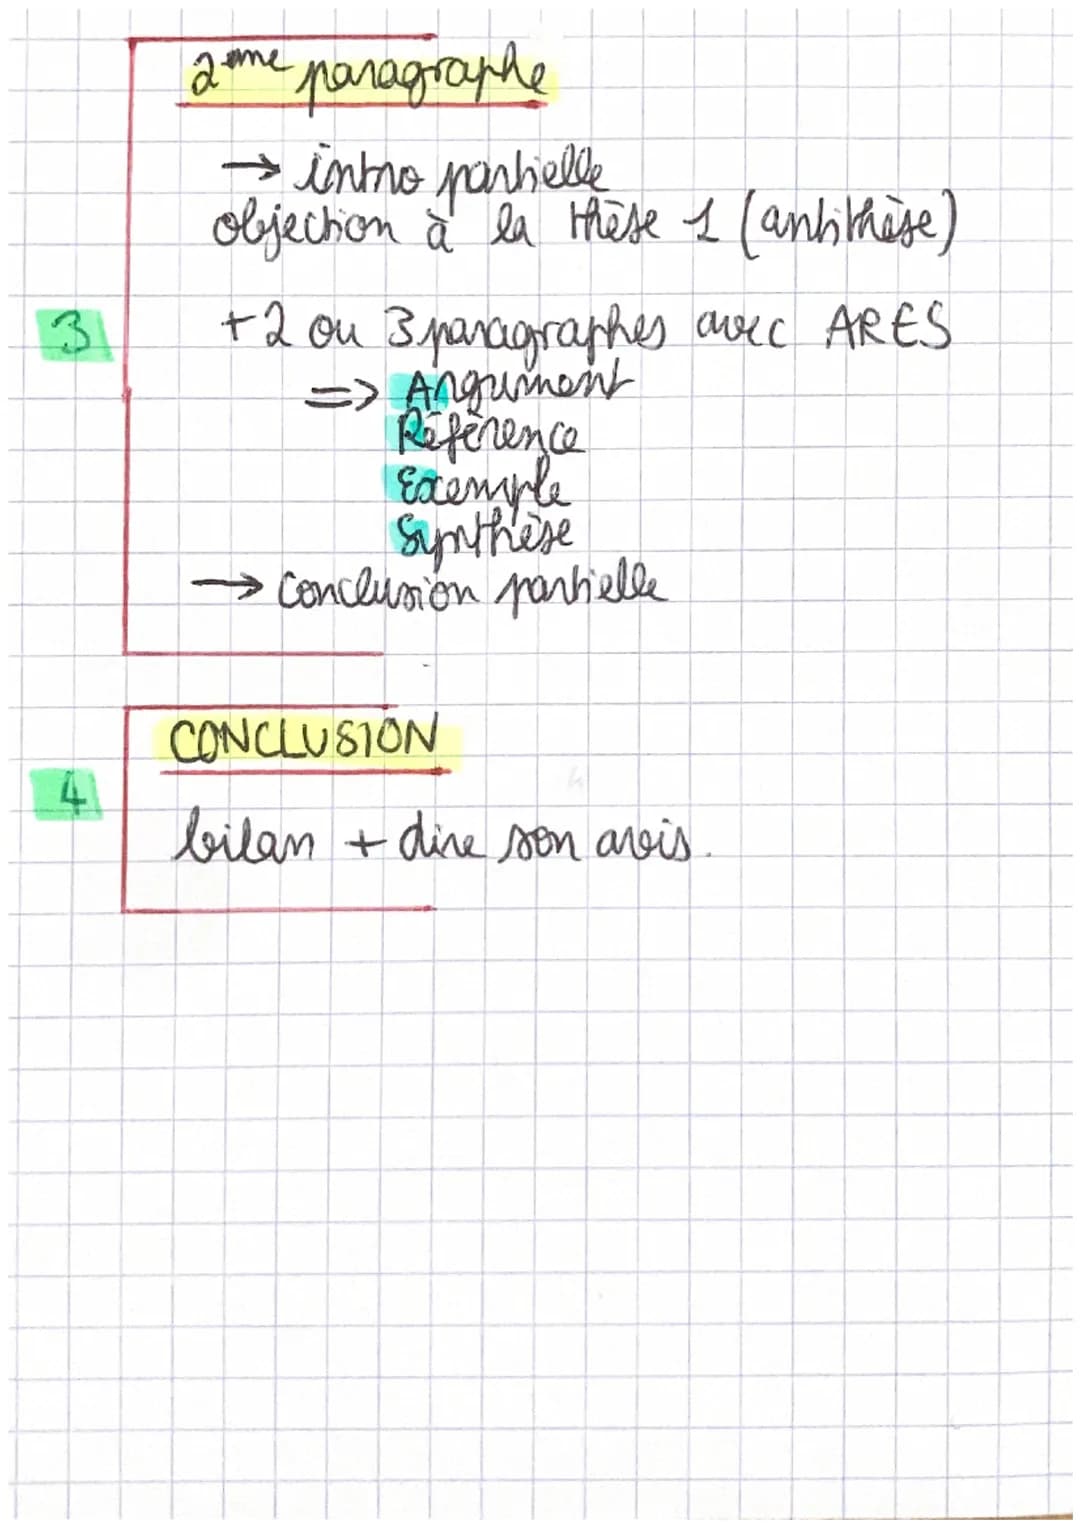 2ème paragraphe
→ intro partielle
objection à la thèse 1 (antithèse)
3
+ 2 ou 3 paragraphes avec ARES
=> Argument
Référence
Exemple
Synthèse
→ conclusion partielle
CONCLUSION
4
bilan + dire son avis.